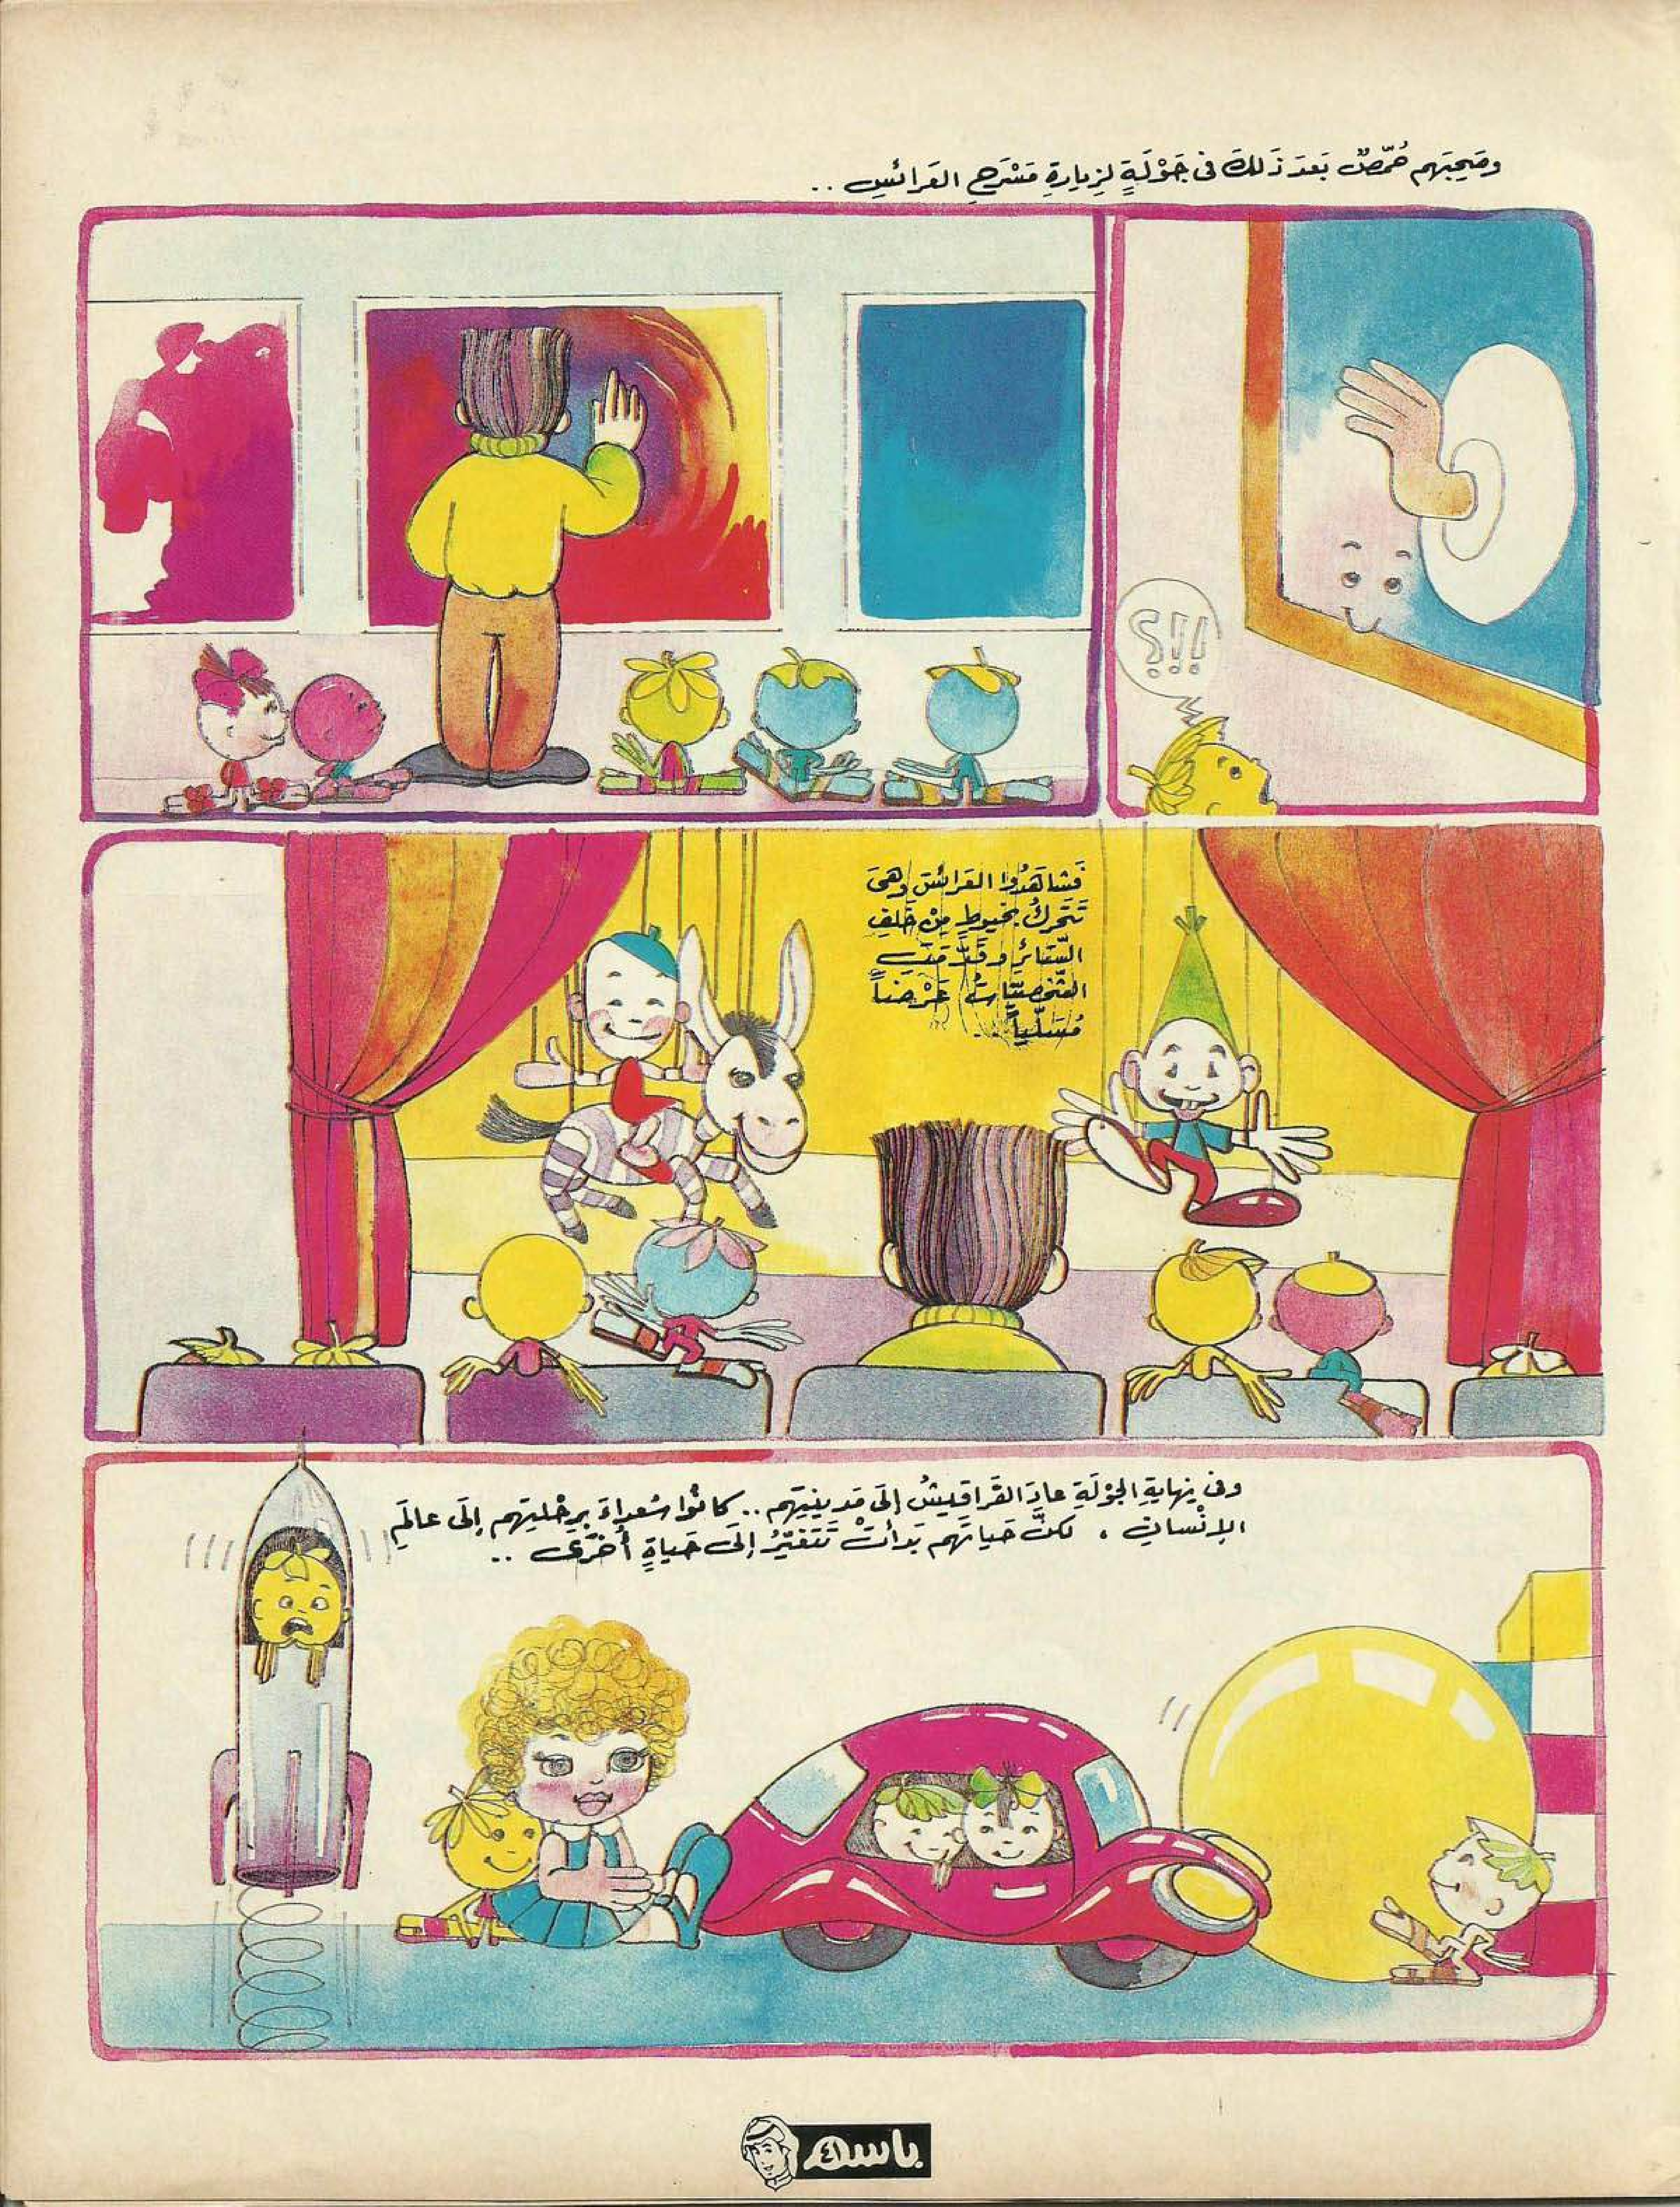 وصَحِبَهم حُمّصٌ بَعدَ ذَلكَ فى جَوْلَةٍ لزيارةِ مَسْرَحِ العَرائسِ ..
؟!!
فشاهَدُوا العَرائسَ وهىَ
تَتَحركُ بخيوطٍ مِنْ خَلفِ
السّتائرِ وقَدَّمَتِ
الشّخصيّاتُ عَرْضاً
مُسَلّياً ..
وفى نِهايَةِ الجوْلَةِ عادَ القَراقيشُ إلَى مَدينتِهم .. كانُوا سُعداءَ برِحْلتِهم إلَى عالَمِ
الإنْسانِ ، لكنَّ حَياتَهم بَدأتْ تَتَغيّرُ إلَى حَياةٍ أُخْرَى ..
باسم